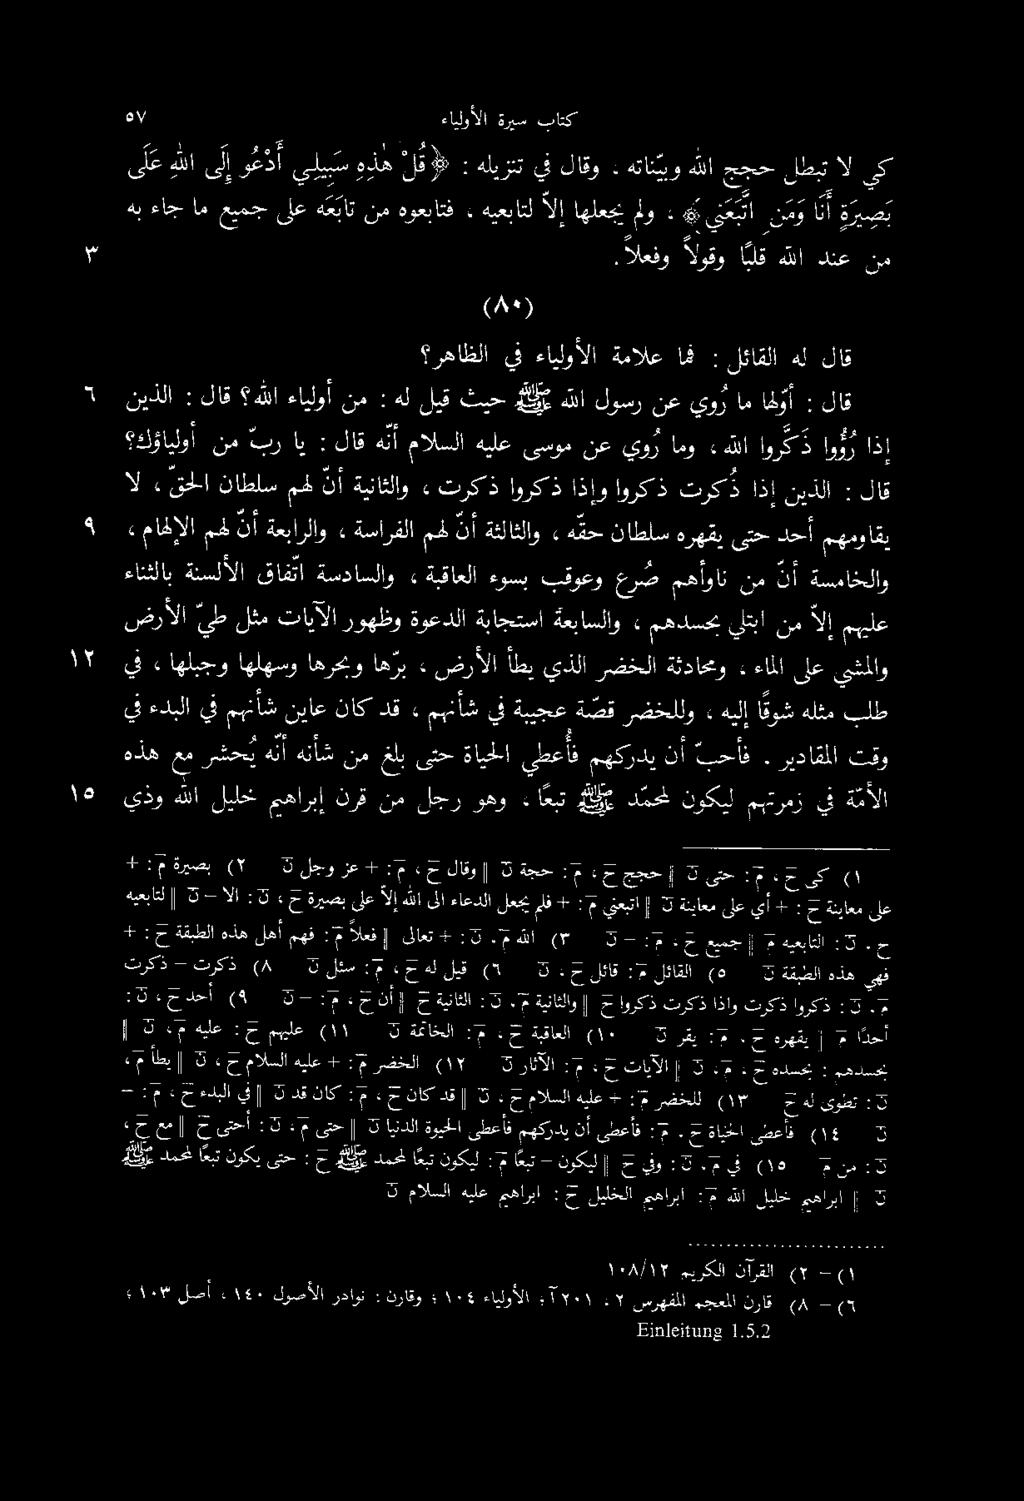 كتاب سيرة الأولياء ٥٧
كي لا تبطل حجج الله وبيّناته ، وقال في تنزيله : ﴿قُلْ هٰذِهِ سَبِيلِي أَدْعُو إِلَى اللهِ عَلَى
بَصِيرَةٍ أَنَا وَمَنِ اتَّبَعَنِي﴾ ، ولم يجعلها إلاّ لتابعيه ، فتابعوه من تابَعَه على جميع ما جاء به
من عند الله قلبًا وقولاً وفعلاً . ٣
(٨٠)
قال له القائل : فما علامة الأولياء في الظاهر؟
قال : أوّلها ما رُوي عن رسول الله ﷺ حيث قيل له : من أولياء الله؟ قال : الذين ٦
إذا رُؤُوا ذَكَّروا الله ، وما رُوي عن موسى عليه السلام أنّه قال : يا ربّ من أولياؤك؟
قال : الذين إذا ذُكرت ذكروا وإذا ذكروا ذكرت ، والثانية أنّ لهم سلطان الحقّ ، لا
يقاومهم أحد حتى يقهره سلطان حقّه ، والثالثة أنّ لهم الفراسة ، والرابعة أنّ لهم الإلهام ، ٩
والخامسة أنّ من ناوأهم صُرع وعوقب بسوء العاقبة ، والسادسة اتّفاق الألسنة بالثناء
عليهم إلاّ من ابتلي بحسدهم ، والسابعة استجابة الدعوة وظهور الآيات مثل طيّ الأرض
والمشي على الماء ، ومحادثة الخضر الذي يطأ الأرض ، برّها وبحرها وسهلها وجبلها ، في ١٢
طلب مثله شوقًا إليه ، وللخضر قصّة عجيبة في شأنهم ، قد كان عاين شأنهم في البدء في
وقت المقادير . فأحبّ أن يدركهم فأُعطي الحياة حتى بلغ من شأنه أنّه يُحشر مع هذه
الأمّة في زمرتهم ليكون لمحمّد ﷺ تبعًا ، وهو رجل من قرن إبراهيم خليل الله وذي ١٥
١) كى ح ، م : حتى ن ‖ حجج ح ، م : حجة ن ‖ وقال ح ، م : + عز وجل ن ٢) بصيرة م : +
على معاينة ح : + أي على معاينة ن ‖ اتبعني م : + فلم يجعل الدعاء الى الله إلاّ على بصيرة ح ، ن : الا – ن ‖ لتابعيه
ح . ن : التابعيه م ‖ جميع ح ، م : – ن ٣) الله م . ن : + تعالى ‖ فعلاً م : فهم أهل هذه الطبقة ح : +
فهي هذه الطبقة ن ٥) القائل م : قائل ح ، ن ٦) قيل له ح ، م : سئل ن ٨) ذكرت – ذكرت
م . ن : ذكروا ذكرت واذا ذكرت ذكروا ح ‖ والثانية م . ن : الثانية ح ‖ أن ح ، م : – ن ٩) أحد ح ، ن :
أحدًا م ‖ يقهره ح . م : يقر ن ١٠) العاقبة ح ، م : الخاتمة ن ١١) عليهم ح : عليه م ، ن ‖
بحسدهم : بحسده ح ، م ، ن ‖ الآيات ح ، م : الآثار ن ١٢) الخضر م : + عليه السلام ح ، ن ‖ يطأ م ،
ن : تطوى له ح ١٣) للخضر م : + عليه السلام ح ، ن ‖ قد كان ح ، م : كان قد ن ‖ في البدء ح ، م : –
ن ١٤) فأعطى الحياة ح . م : فأعطى أن يدركهم فأعطى الحيوة الدنيا ن ‖ حتى م ، ن : أحتى ح ‖ مع ح ،
ن : من م ١٥) في م . ن : وفي ح ‖ ليكون – تبعًا م : ليكون تبعًا لمحمد ﷺ ح : حتى يكون تبعًا لمحمد ﷺ
ن ‖ ابراهيم خليل الله م : ابراهيم الخليل ح : ابراهيم عليه السلام ن
١) – ٢) القرآن الكريم ١٠٨/١٢
٦) – ٨) قارن المعجم المفهرس ٢ ، ٢٠١ آ ؛ الأولياء ١٠٤ ؛ وقارن : نوادر الأصول ١٤٠ ، أصل ١٠٣ ؛
Einleitung 1.5.2